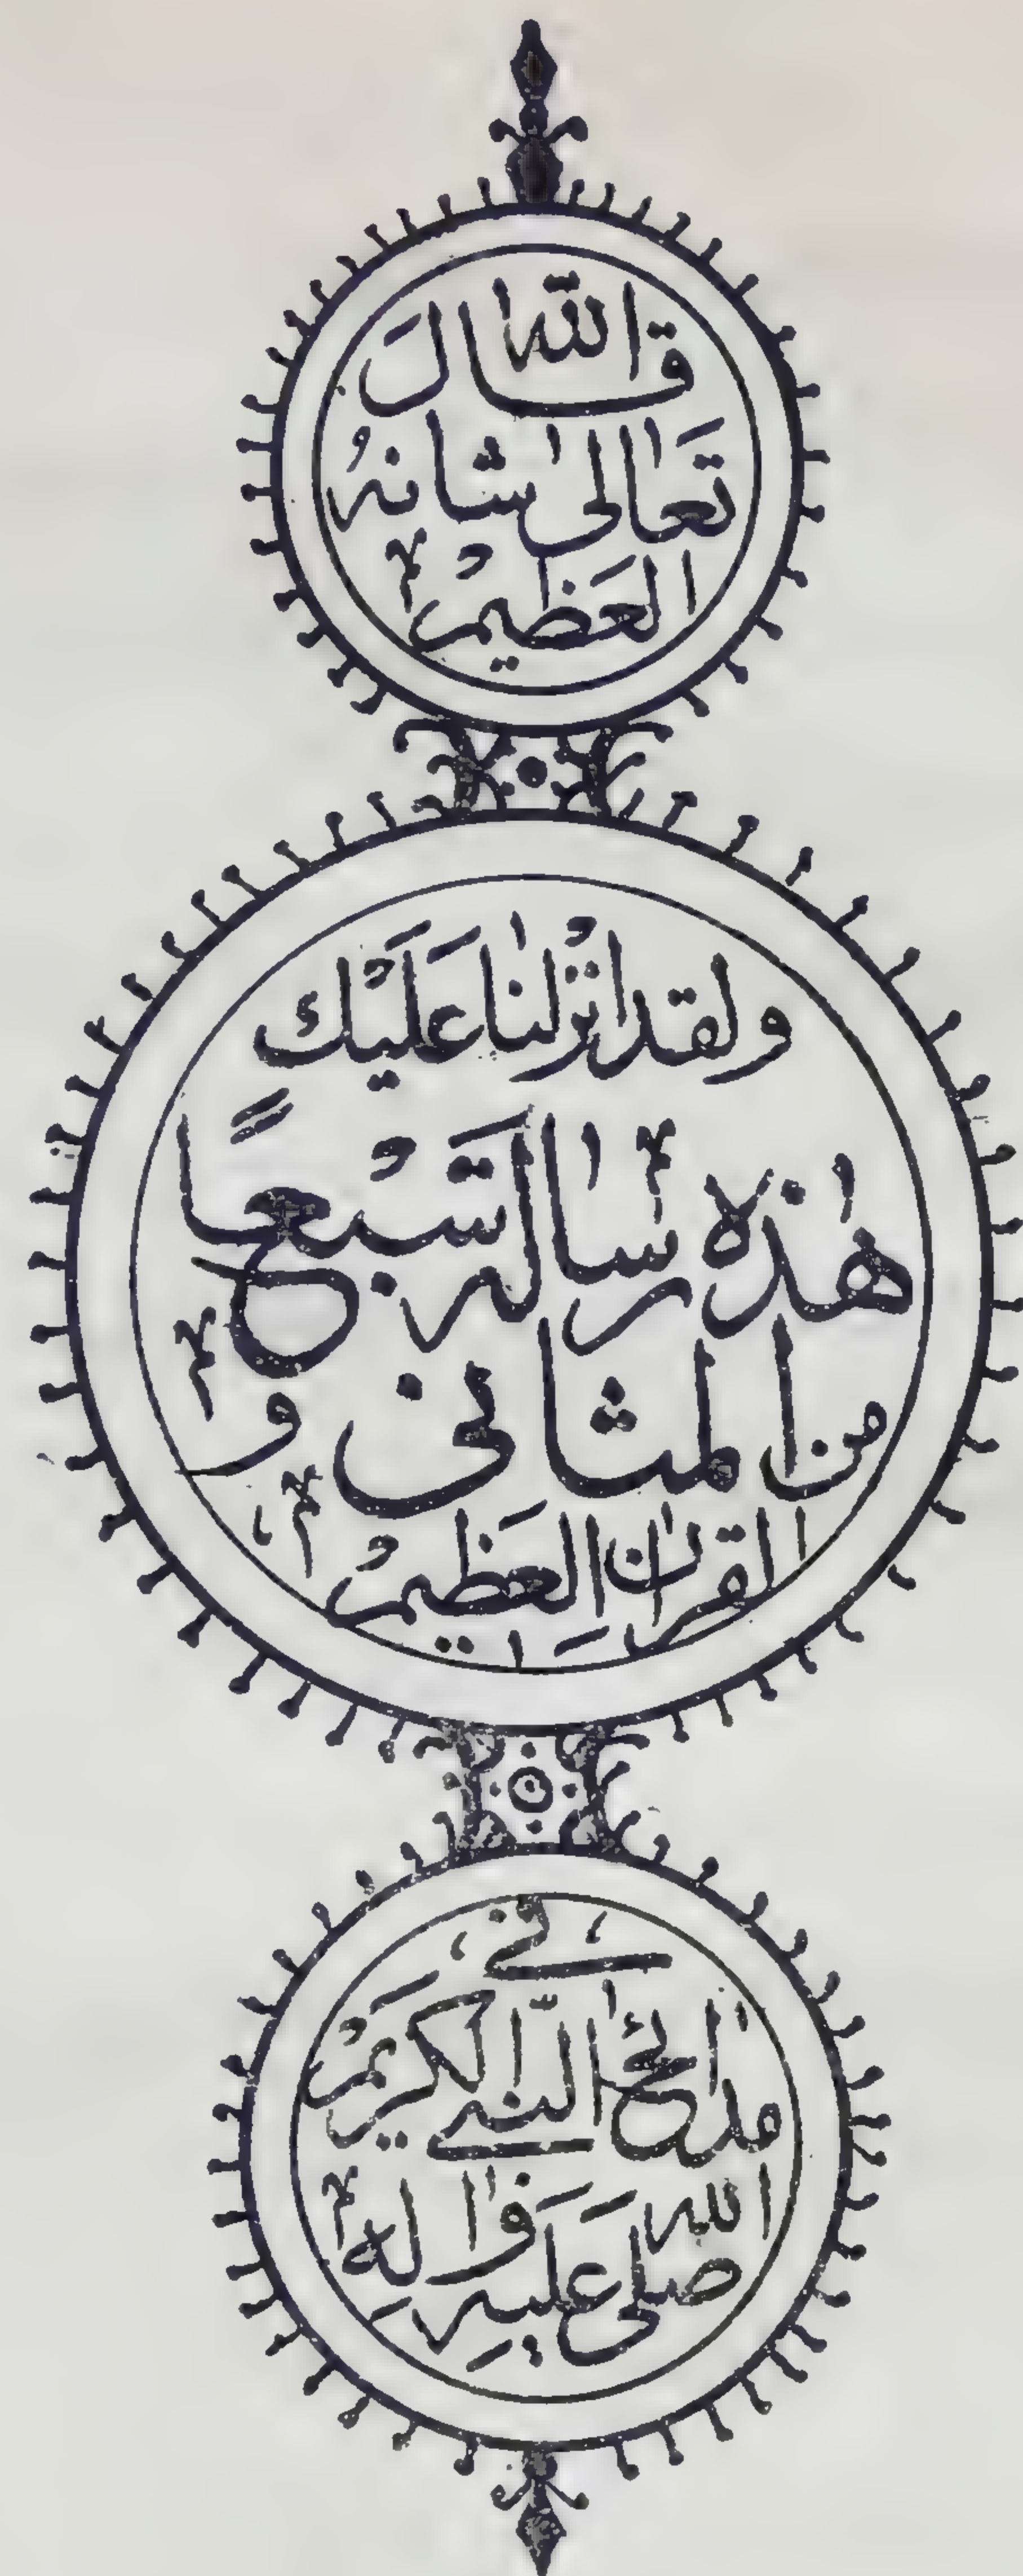 قال الله
تعالىٰ شانهُ
العَظيمْ
ولقد انْزلنٰا عَلَيْك
هٰذه رسالہ سَبْعًا
من المثانی و
القرآن العَظيمْ
فی
مدائح النّبی الکَریمْ
صلی الله عَلیهِ وَاٰلهِ